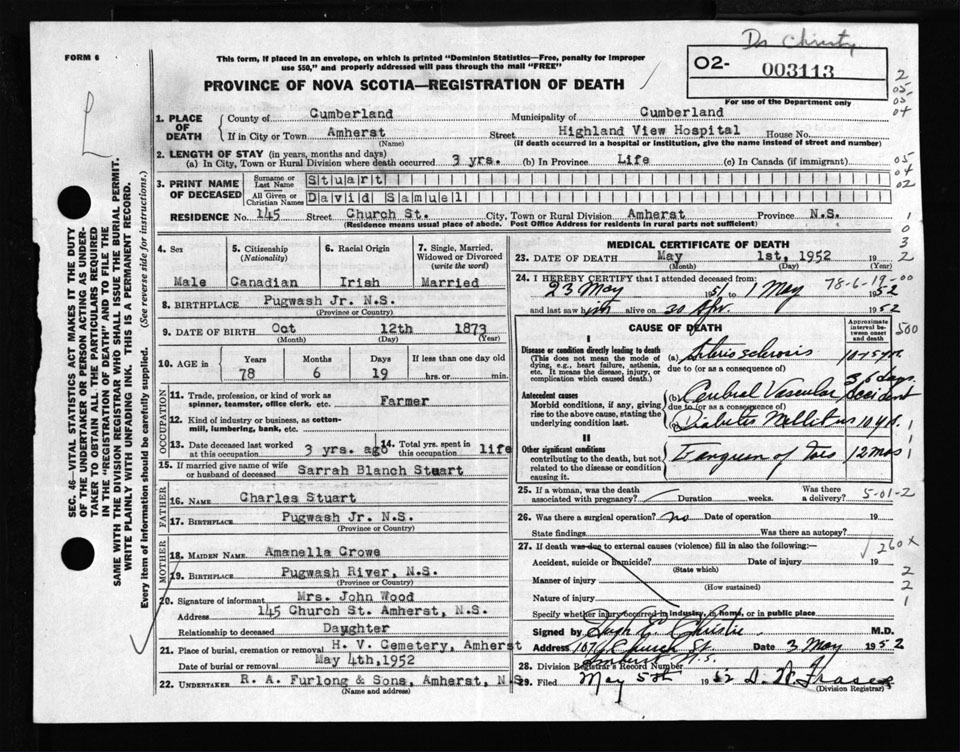 Dr Christy
FORM 6
This form, if placed in an envelope, on which is printed "Dominion Statistics—Free, penalty for improper
use $50," and properly addressed will pass through the mail "FREE"
02-
003113
PROVINCE OF NOVA SCOTIA—REGISTRATION OF DEATH
For use of the Department only
1. PLACE OF DEATH
County of Cumberland Municipality of Cumberland
If in City or Town Amherst Street Highland View Hospital House No.
(Name) (If death occurred in a hospital or institution, give the name instead of street and number)
2. LENGTH OF STAY (in years, months and days)
(a) In City, Town or Rural Division where death occurred 3 yrs. (b) In Province Life (c) In Canada (if immigrant)
3. PRINT NAME OF DECEASED
Surname or Last Name Stuart
All Given or Christian Names David Samuel
RESIDENCE No. 145 Street Church St. City, Town or Rural Division Amherst Province N.S.
(Residence means usual place of abode. Post Office Address for residents in rural parts not sufficient)
4. Sex Male
5. Citizenship (Nationality) Canadian
6. Racial Origin Irish
7. Single, Married, Widowed or Divorced (write the word) Married
8. BIRTHPLACE Pugwash Jr. N.S.
(Province or Country)
9. DATE OF BIRTH Oct 12th 1873
(Month) (Day) (Year)
10. AGE in Years 78 Months 6 Days 19 If less than one day old hrs. or min.
OCCUPATION
11. Trade, profession, or kind of work as spinner, teamster, office clerk, etc. Farmer
12. Kind of industry or business, as cotton-mill, lumbering, bank, etc.
13. Date deceased last worked at this occupation 3 yrs. ago
14. Total yrs. spent in this occupation life
15. If married give name of wife or husband of deceased Sarrah Blanch Stuart
FATHER
16. NAME Charles Stuart
17. BIRTHPLACE Pugwash Jr. N.S.
(Province or Country)
MOTHER
18. MAIDEN NAME Amanella Crowe
19. BIRTHPLACE Pugwash River, N.S.
(Province or Country)
20. Signature of informant Mrs. John Wood
Address 145 Church St. Amherst, N.S.
Relationship to deceased Daughter
21. Place of burial, cremation or removal H. V. Cemetery, Amherst
Date of burial or removal May 4th, 1952
22. UNDERTAKER R. A. Furlong & Sons, Amherst, N.S.
(Name and address)
MEDICAL CERTIFICATE OF DEATH
23. DATE OF DEATH May 1st, 1952 19
(Month) (Day) (Year)
24. I HEREBY CERTIFY that I attended deceased from: 78-6-19-00
23 May 1951 1 May 1952
and last saw him alive on 30 Apr. 1952
CAUSE OF DEATH
Approximate interval between onset and death
I
Disease or condition directly leading to death
(This does not mean the mode of dying, e.g., heart failure, asthenia, etc. It means the disease, injury, or complication which caused death.)
(a) Arteriosclerosis 10-15 yrs.
due to (or as a consequence of)
Antecedent causes
Morbid conditions, if any, giving rise to the above cause, stating the underlying condition last.
(b) Cerebral Vascular Accident 36 days
due to (or as a consequence of)
Diabetes Mellitus 10 yrs.
II
Other significant conditions
contributing to the death, but not related to the disease or condition causing it.
Gangrene of Toes 12 mos
25. If a woman, was the death associated with pregnancy? Duration weeks. Was there a delivery? 5-01-2
26. Was there a surgical operation? no Date of operation 19
State findings Was there an autopsy?
260x
27. If death was due to external causes (violence) fill in also the following:—
Accident, suicide or homicide? Date of injury 19
(State which)
Manner of injury
(How sustained)
Nature of injury
Specify whether injury occurred in industry, in home, or in public place
Signed by Hugh E. Christie M.D.
Address 107 Church St Date 3 May 1952
Amherst N.S.
28. Division Registrar's Record Number
29. Filed May 5th 1952 D. W. Fraser
(Division Registrar)
SEC. 46—VITAL STATISTICS ACT MAKES IT THE DUTY
OF THE UNDERTAKER OR PERSON ACTING AS UNDER-
TAKER TO OBTAIN ALL THE PARTICULARS REQUIRED
IN THE "REGISTRATION OF DEATH" AND TO FILE THE
SAME WITH THE DIVISION REGISTRAR WHO SHALL ISSUE THE BURIAL PERMIT.
WRITE PLAINLY WITH UNFADING INK. THIS IS A PERMANENT RECORD.
Every item of information should be carefully supplied. (See reverse side for instructions.)